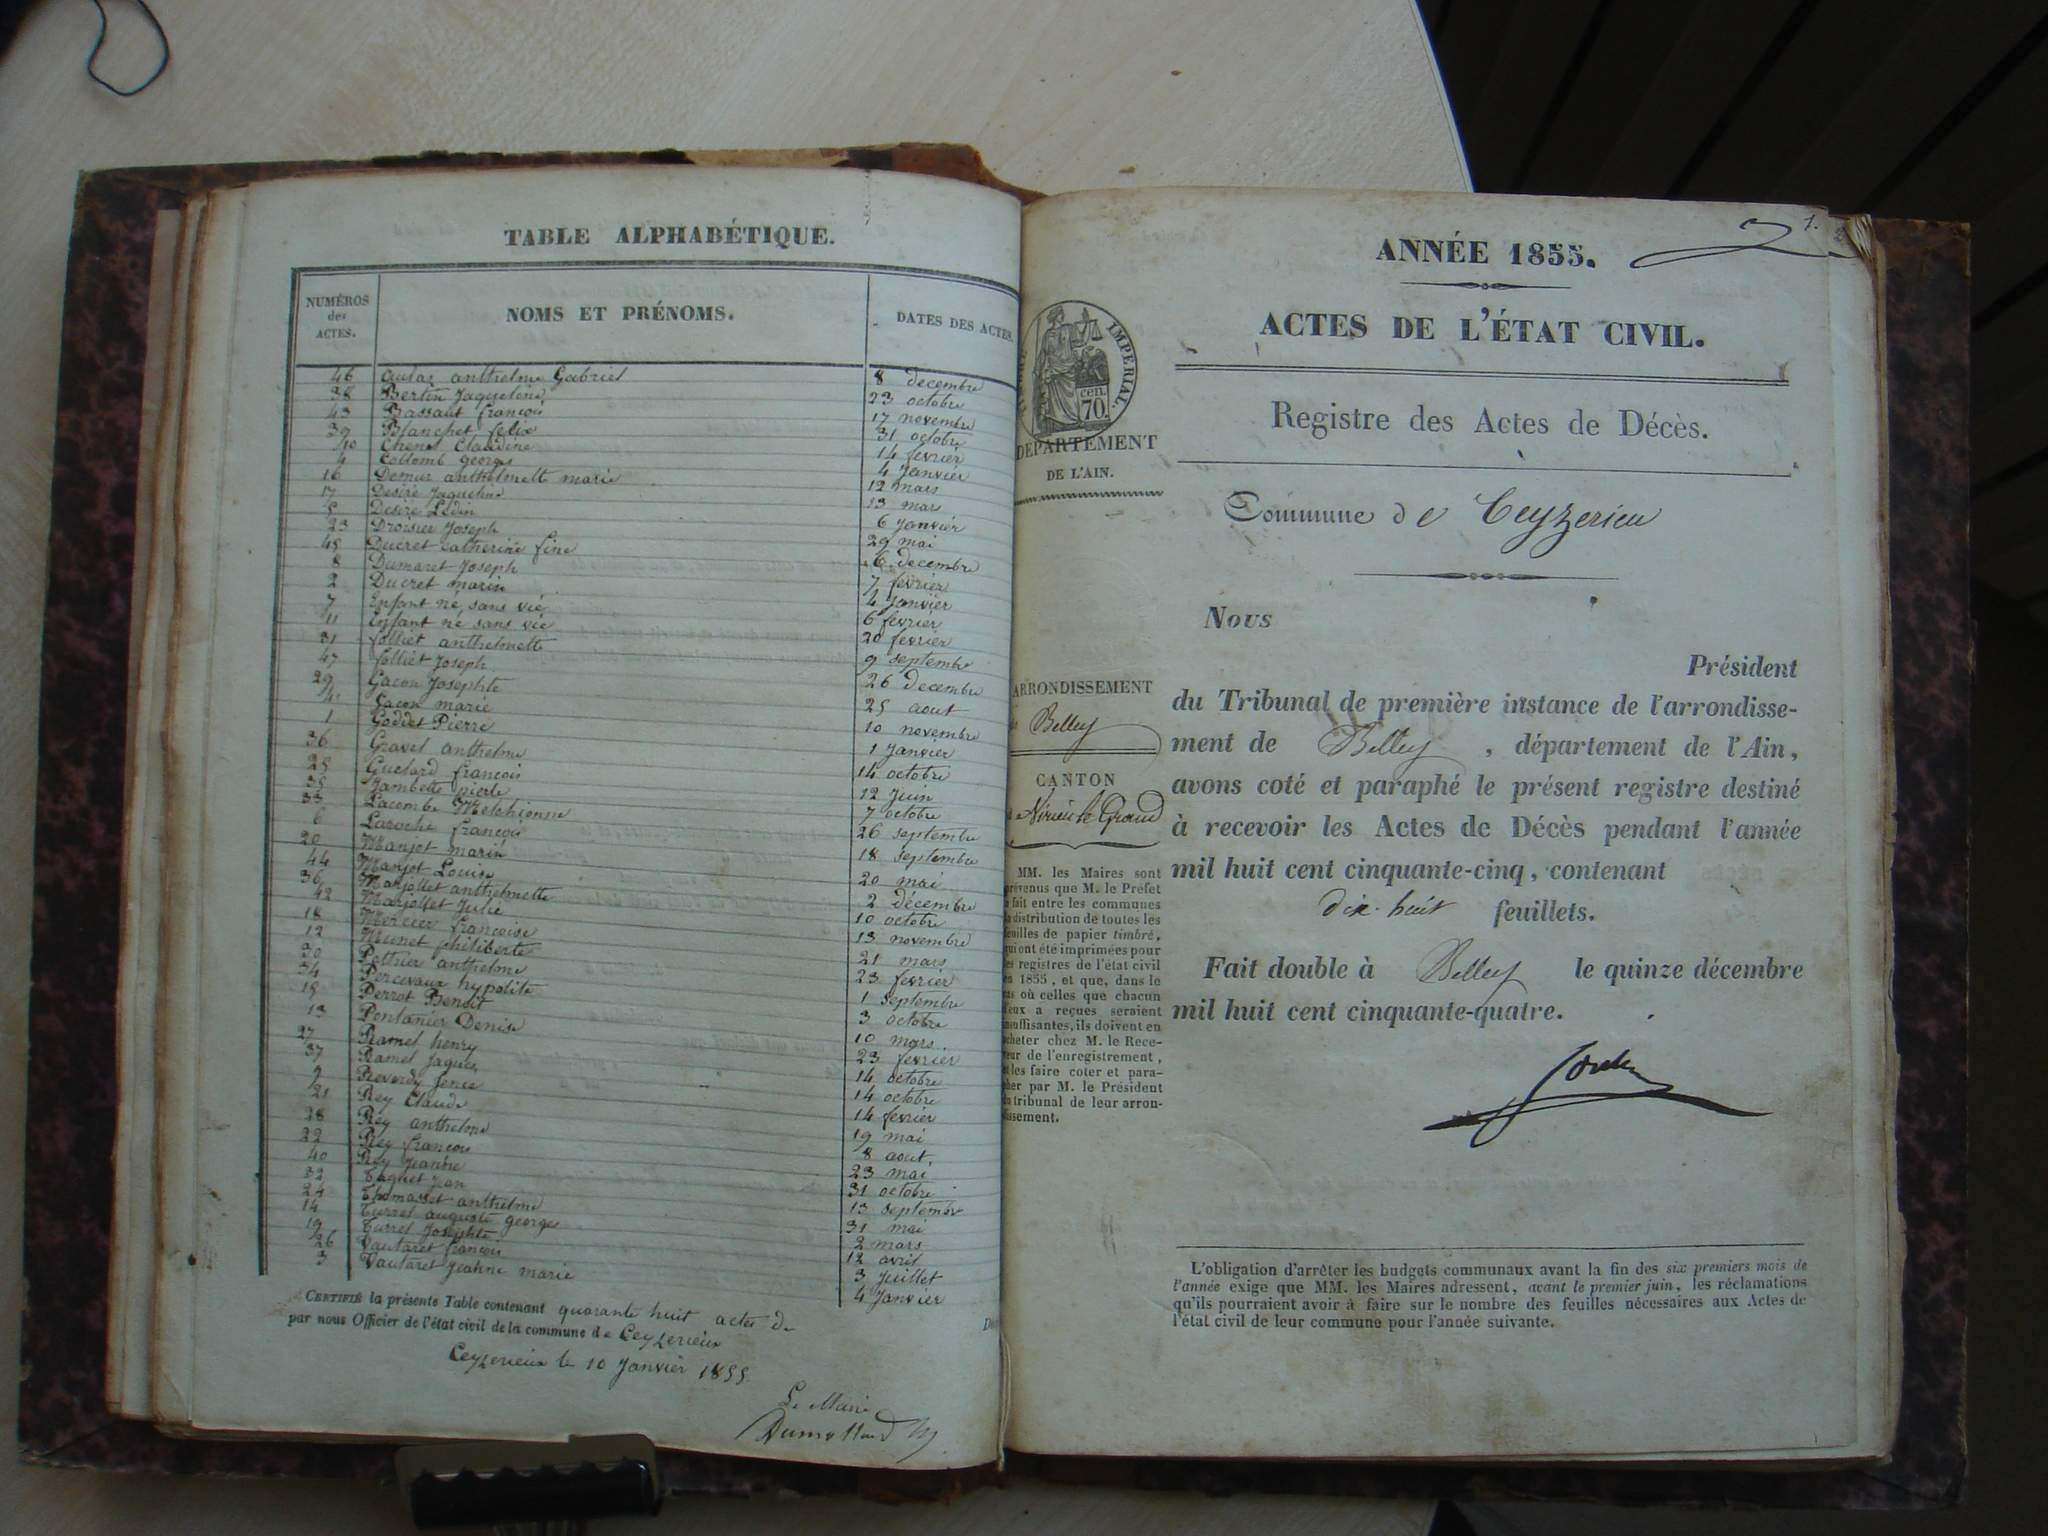 TABLE ALPHABÉTIQUE.
NUMÉROS des ACTES. NOMS ET PRÉNOMS. DATES DES ACTES.
46 anthelme Gabriel 8 decembre
38 Bertin Jaqueline 23 octobre
43 Bassaut françois 17 novembre
39 Blanchet felix 31 octobre
10 Chenet Claudine 14 fevrier
4 Collomb georges 4 Janvier
16 Demur anthelmette marie 12 mars
17 Desire Jaqueline 13 mars
5 Desire 6 Janvier
23 Droisier Joseph 29 mai
48 Ducret Catherine fine 6 decembre
8 Dumaret Joseph 7 fevrier
2 Ducret marin 4 Janvier
7 Enfant né sans vie 6 fevrier
11 Enfant né sans vie 20 fevrier
31 folliet anthelmette 9 septembre
47 folliet Joseph 26 decembre
29 Gacon Josephte 25 aout
41 Gacon marie 10 novembre
1 Goddet Pierre 1 Janvier
36 Gravel anthelme 14 octobre
25 françois 12 Juin
35 Jambette pierre 7 octobre
33 Lacombe Melchionne 26 septembre
6 Laroche françois 18 septembre
20 Manjot marin 20 mai
44 Manjot Louise 2 décembre
36 Marjollet anthelmette 10 octobre
42 Marjollet Julie 13 novembre
18 Mercier françoise 21 mars
12 Munet philiberte 23 fevrier
30 Pettier anthelme 1 septembre
34 Percevaux hypolite 3 octobre
15 Perrot Benoit 10 mars
13 Pontanier Denise 23 fevrier
27 Ramel henry 14 octobre
37 Ramel Jaques 14 octobre
9 Reverdy 14 fevrier
21 Rey Claude 19 mai
28 Rey anthelme 8 aout
22 Rey françois 23 mai
40 Rey Jeanne 31 octobre
32 Taguet Jean 13 septembre
24 Thomasset anthelme 31 mai
14 Turrel auguste georges 2 mars
19 Turrel Josephte 12 avril
26 Vautaret françois 3 Juillet
3 Vautaret Jeanne marie 4 Janvier
CERTIFIÉ la présente Table contenant quarante huit actes de
par nous Officier de l'état civil de la commune de Ceyzerieux
Ceyzerieux le 10 Janvier 1855
Le Maire
Dumolland
1.
ANNÉE 1855.
ACTES DE L'ÉTAT CIVIL.
Registre des Actes de Décès.
Commune de Ceyzerieu
IMPERIAL.
cen. 70.
DÉPARTEMENT
DE L'AIN.
ARRONDISSEMENT
Belley
CANTON
Virieu le Grand
MM. les Maires sont
prévenus que M. le Préfet
a fait entre les communes
la distribution de toutes les
feuilles de papier timbré,
qui ont été imprimées pour
les registres de l'état civil
en 1855, et que, dans le
cas où celles que chacun
d'eux a reçues seraient
insuffisantes, ils doivent en
acheter chez M. le Rece-
veur de l'enregistrement,
et les faire coter et para-
pher par M. le Président
du tribunal de leur arron-
dissement.
Nous
Président
du Tribunal de première instance de l'arrondisse-
ment de Belley, département de l'Ain,
avons coté et paraphé le présent registre destiné
à recevoir les Actes de Décès pendant l'année
mil huit cent cinquante-cinq, contenant
dix-huit feuillets.
Fait double à Belley le quinze décembre
mil huit cent cinquante-quatre.
L'obligation d'arrêter les budgets communaux avant la fin des six premiers mois de
l'année exige que MM. les Maires adressent, avant le premier juin, les réclamations
qu'ils pourraient avoir à faire sur le nombre des feuilles nécessaires aux Actes de
l'état civil de leur commune pour l'année suivante.